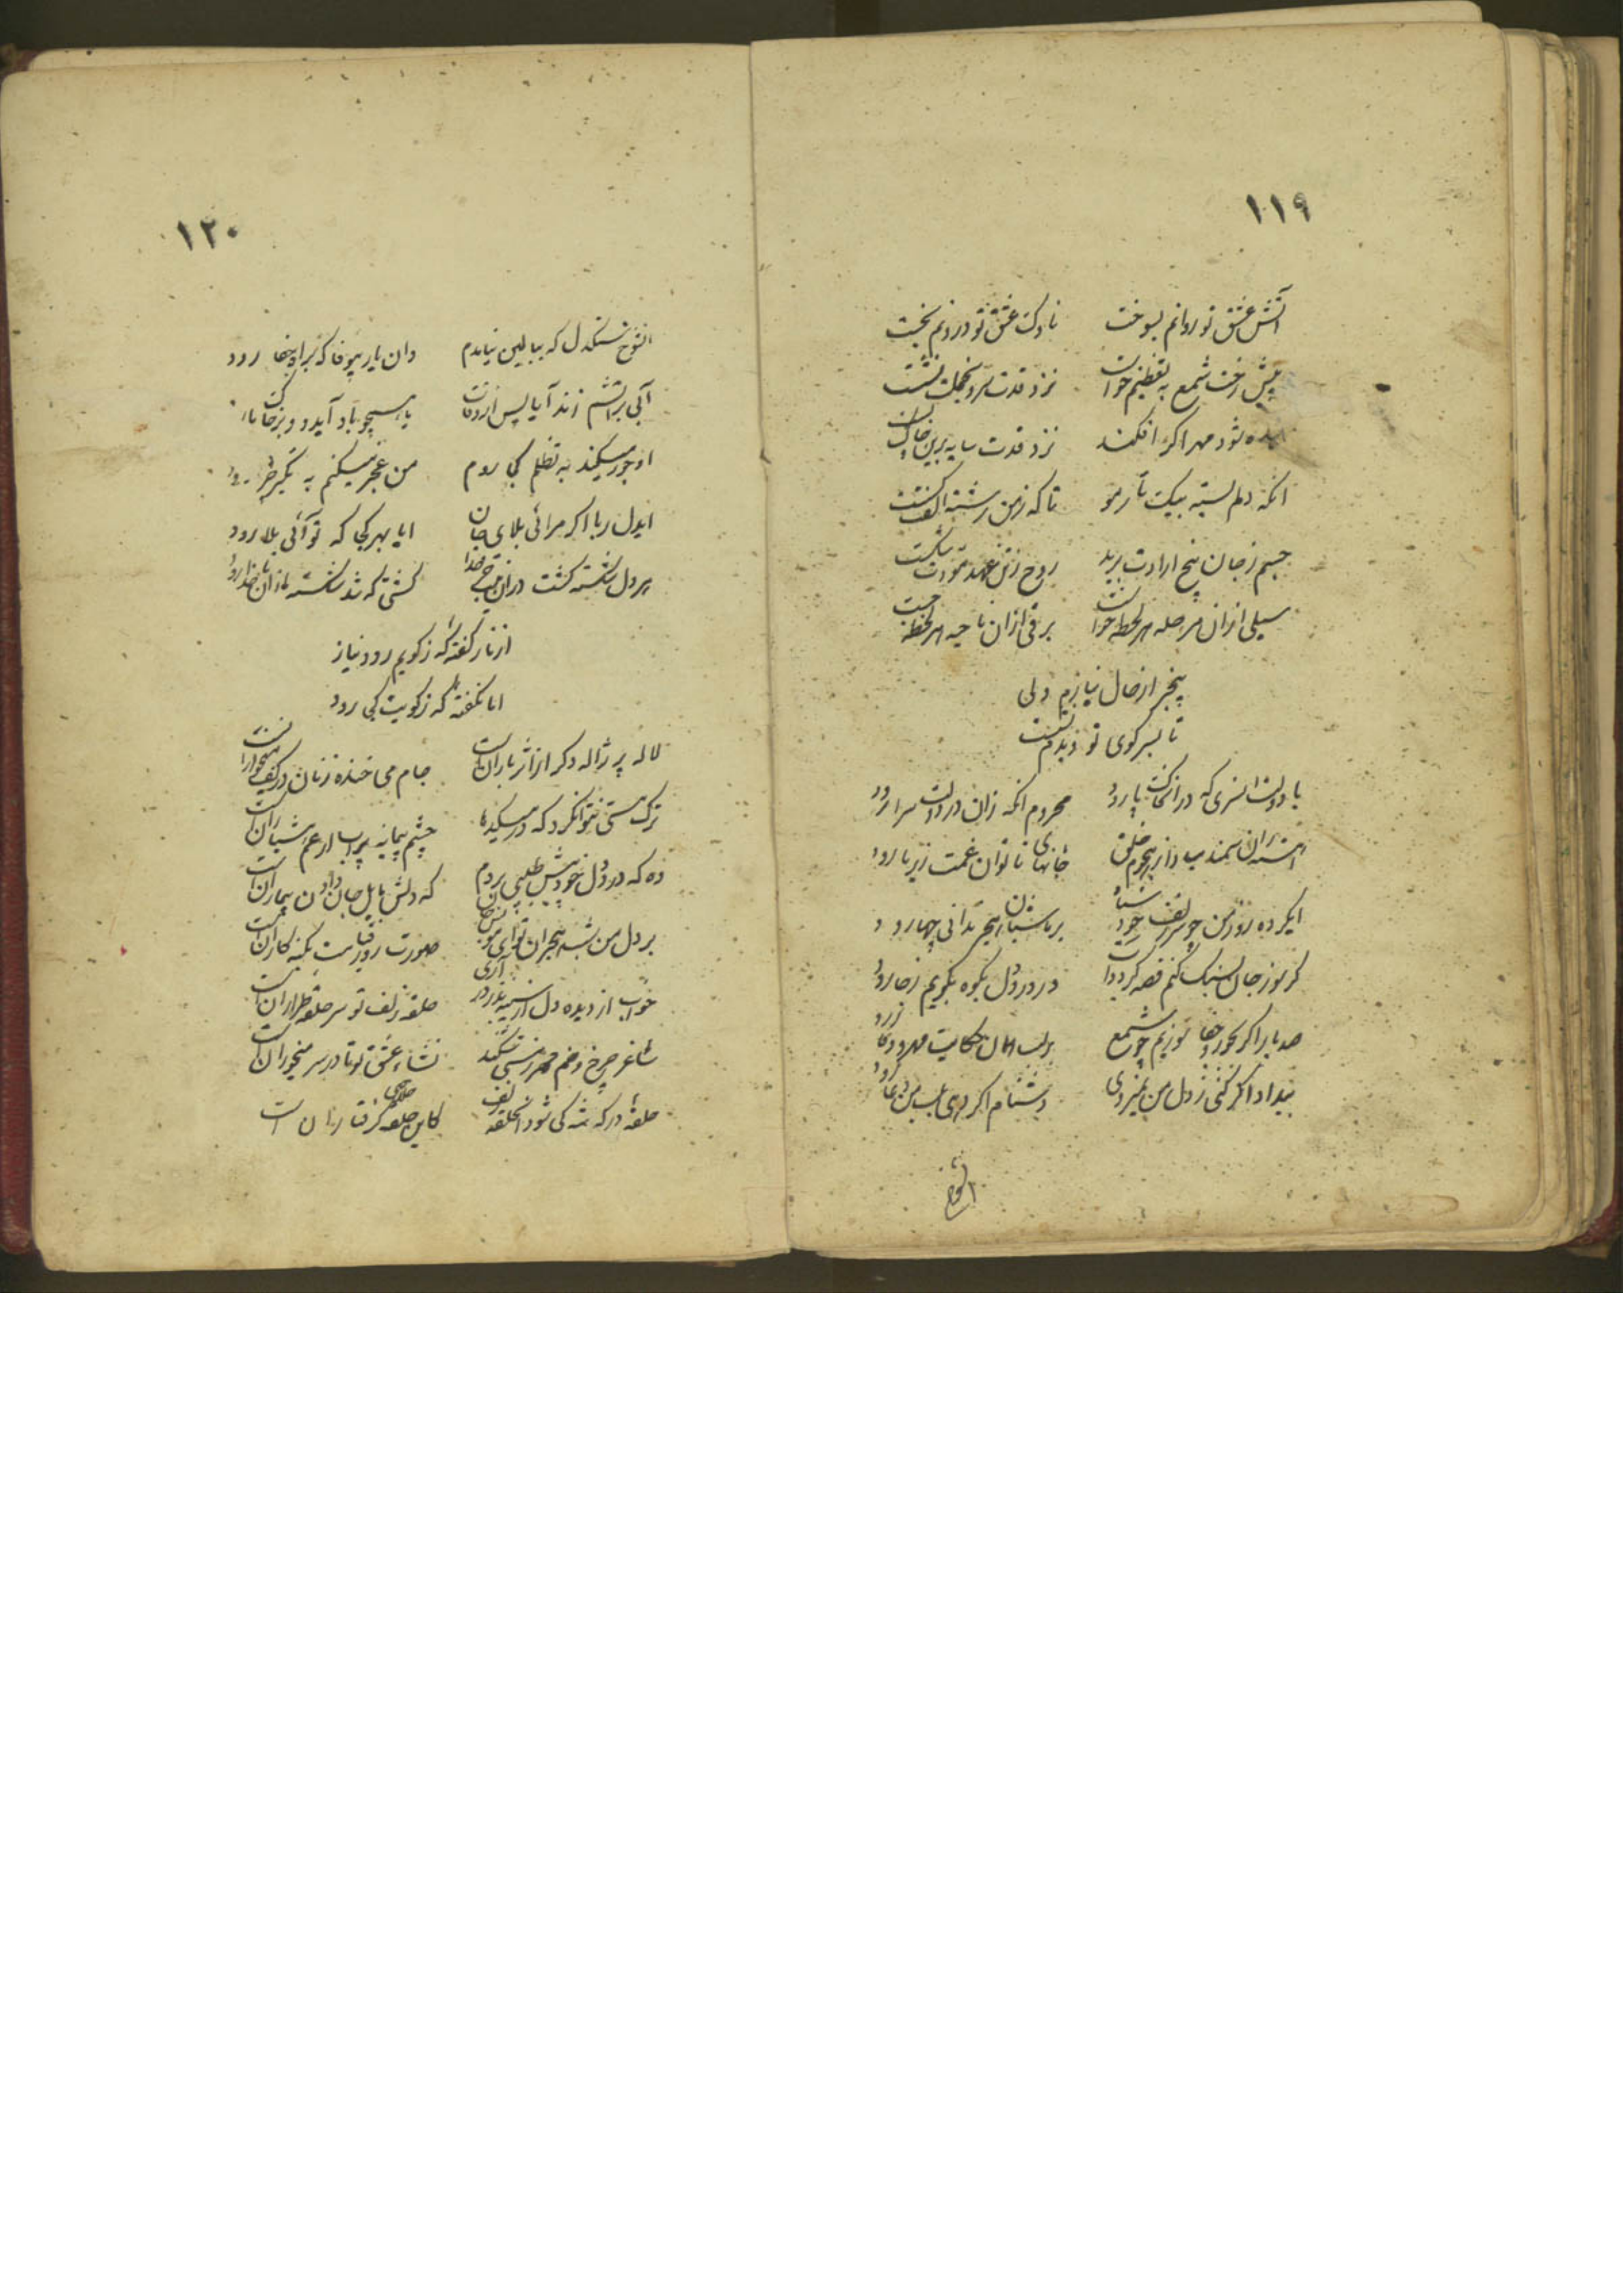 ۱۱۹
آتش عشق تو روانم بسوخت ناوک عشق تو درونم بخست
پیش رخت شمع به تعظیم خواست نزد قدت سرو بخجلت نشست
شود مهر اگر افکند نزد قدت سایه برین خاک
انکه دلم بسته بیکتار مو تا که زمن رشته الفت
جسم زجان بیخ ارادت برید روح زتن عهد مودت شکست
سیلی ازان مرحله هر لحظه خواست برقی ازان ناحیه هر لحظه جست
بیخبر از حال نیازم ولی
تا بسر کوی تو دیدم نشست
با دولت انسری که در انخاکپا رود محروم انکه زان در دولت سرا رود
اهسته ران سمند هجوم خلق جانهای ناتوان غمت زیر پا رود
ایکرده روز من چو سر زلف خود سیاه بر ما شبان هجر ندانی چها رود
کر سوز جان سبک کنم قصه کر دواست در درد دل بکوه بکویم زجا رود
صد بار اکر بجور و جفا سوزیم چو شمع بر لب همان حکایت مهر و وفا رود
بیداد اکر کنی ز دل من نمیروی دشنام اکر دهی بلب من دعا رود
انشوخ
۱۲۰
انشوخ سنکدل که ببالین نیایدم وان یار بیوفا که براه جفا رود
آبی براتشم زند آیا پس از وفات یا همچو باد آید و بر خاک ما
او جور میکند به تظلم کجا روم من عجز میکنم به تکبر چرا رود
ایدل ربا اکر مرائی بلای جان ایا بهر کجا که تو آئی بلا رود
پر دل شکسته کشت دران موج خدا کشتی که شد شکسته ازان ناخدا رود
از ناز کفته که ز کویم رود نیاز
اما نکفته که ز کویت کجا رود
لاله پر ژاله دکر از اثر بارانست جام می خنده زنان در کف میخوارانست
ترک مستی نتوانکرد که در میکده‌ها چشم پیمانه پر آب از غم هشیارانست
وه که درد دل خود پیش طبیبی بردم که دلش مایل جان دادن بیمارانست
بر دل من شب هجران تو ای مونس جان صورت روز قیامت کنه کارانست
خواب از دیده دل از سینه بدزدد آری حلقه زلف تو سر حلقه طرارانست
ساغر چرخ و خم مهر مستی نکند نشاء عشق تو تا در سر میخورانست
حلقه درکه شه کی شود انحلقه زلف کاین حلقه کرفتارانست